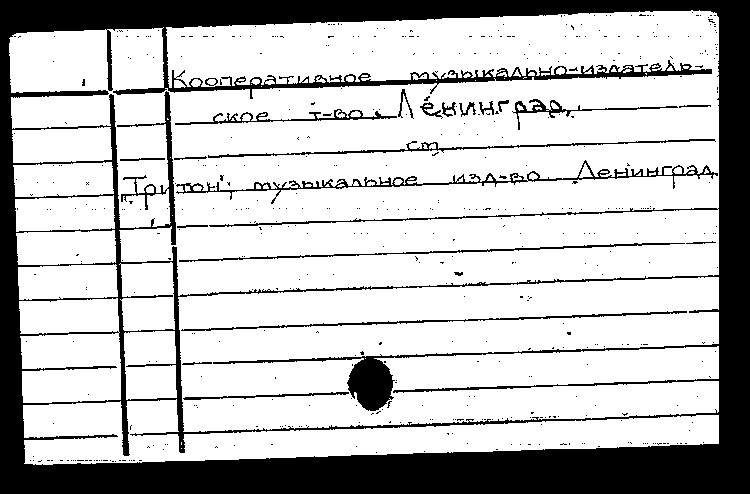 Кооперативное музыкально-издатель-
ское т-во. Ленинград.
см.
"Тритон", музыкальное изд-во Ленинград.